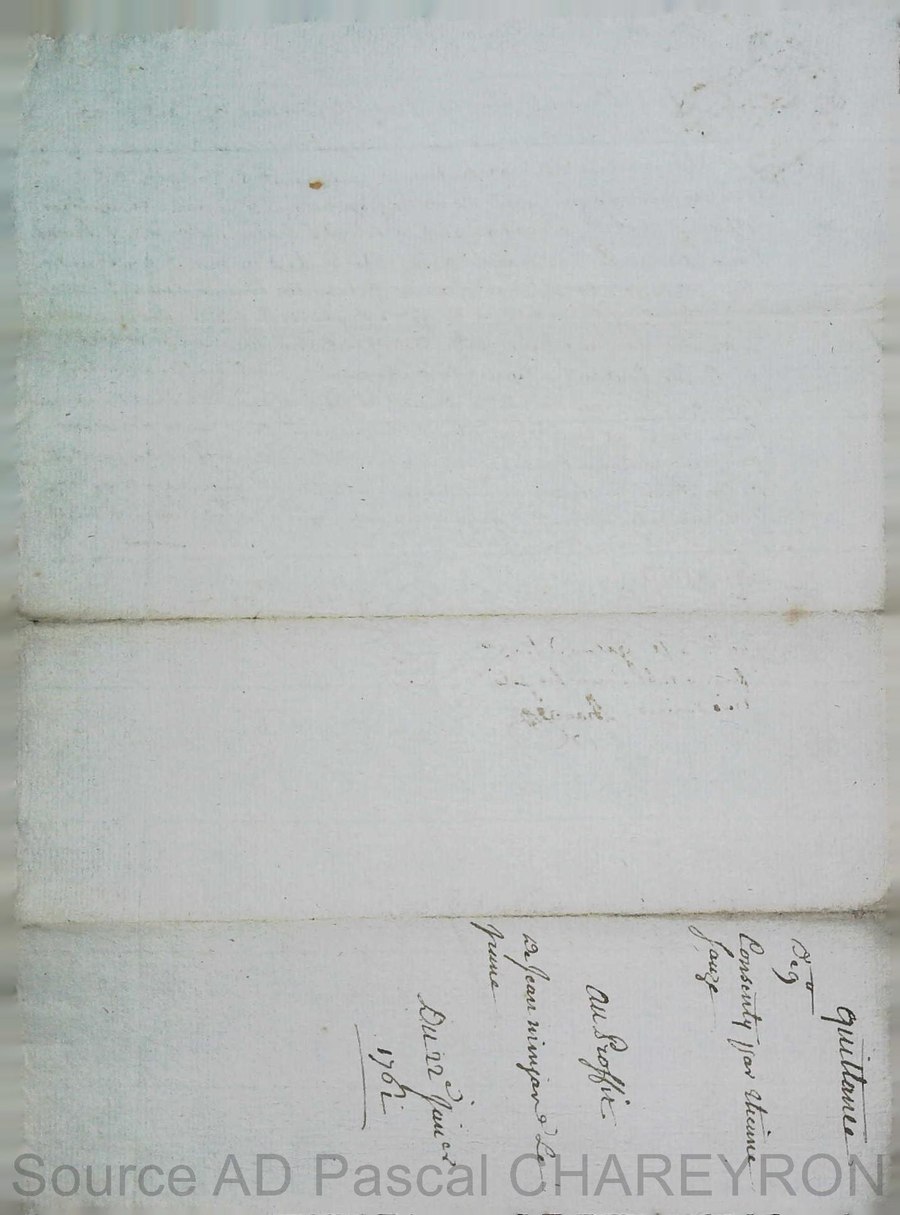 quittance
Consenty par thienne
Sauze
au Proffit
De Jean minjard Le
jeune
Du 22 Janer
1762
Source AD Pascal CHAREYRON